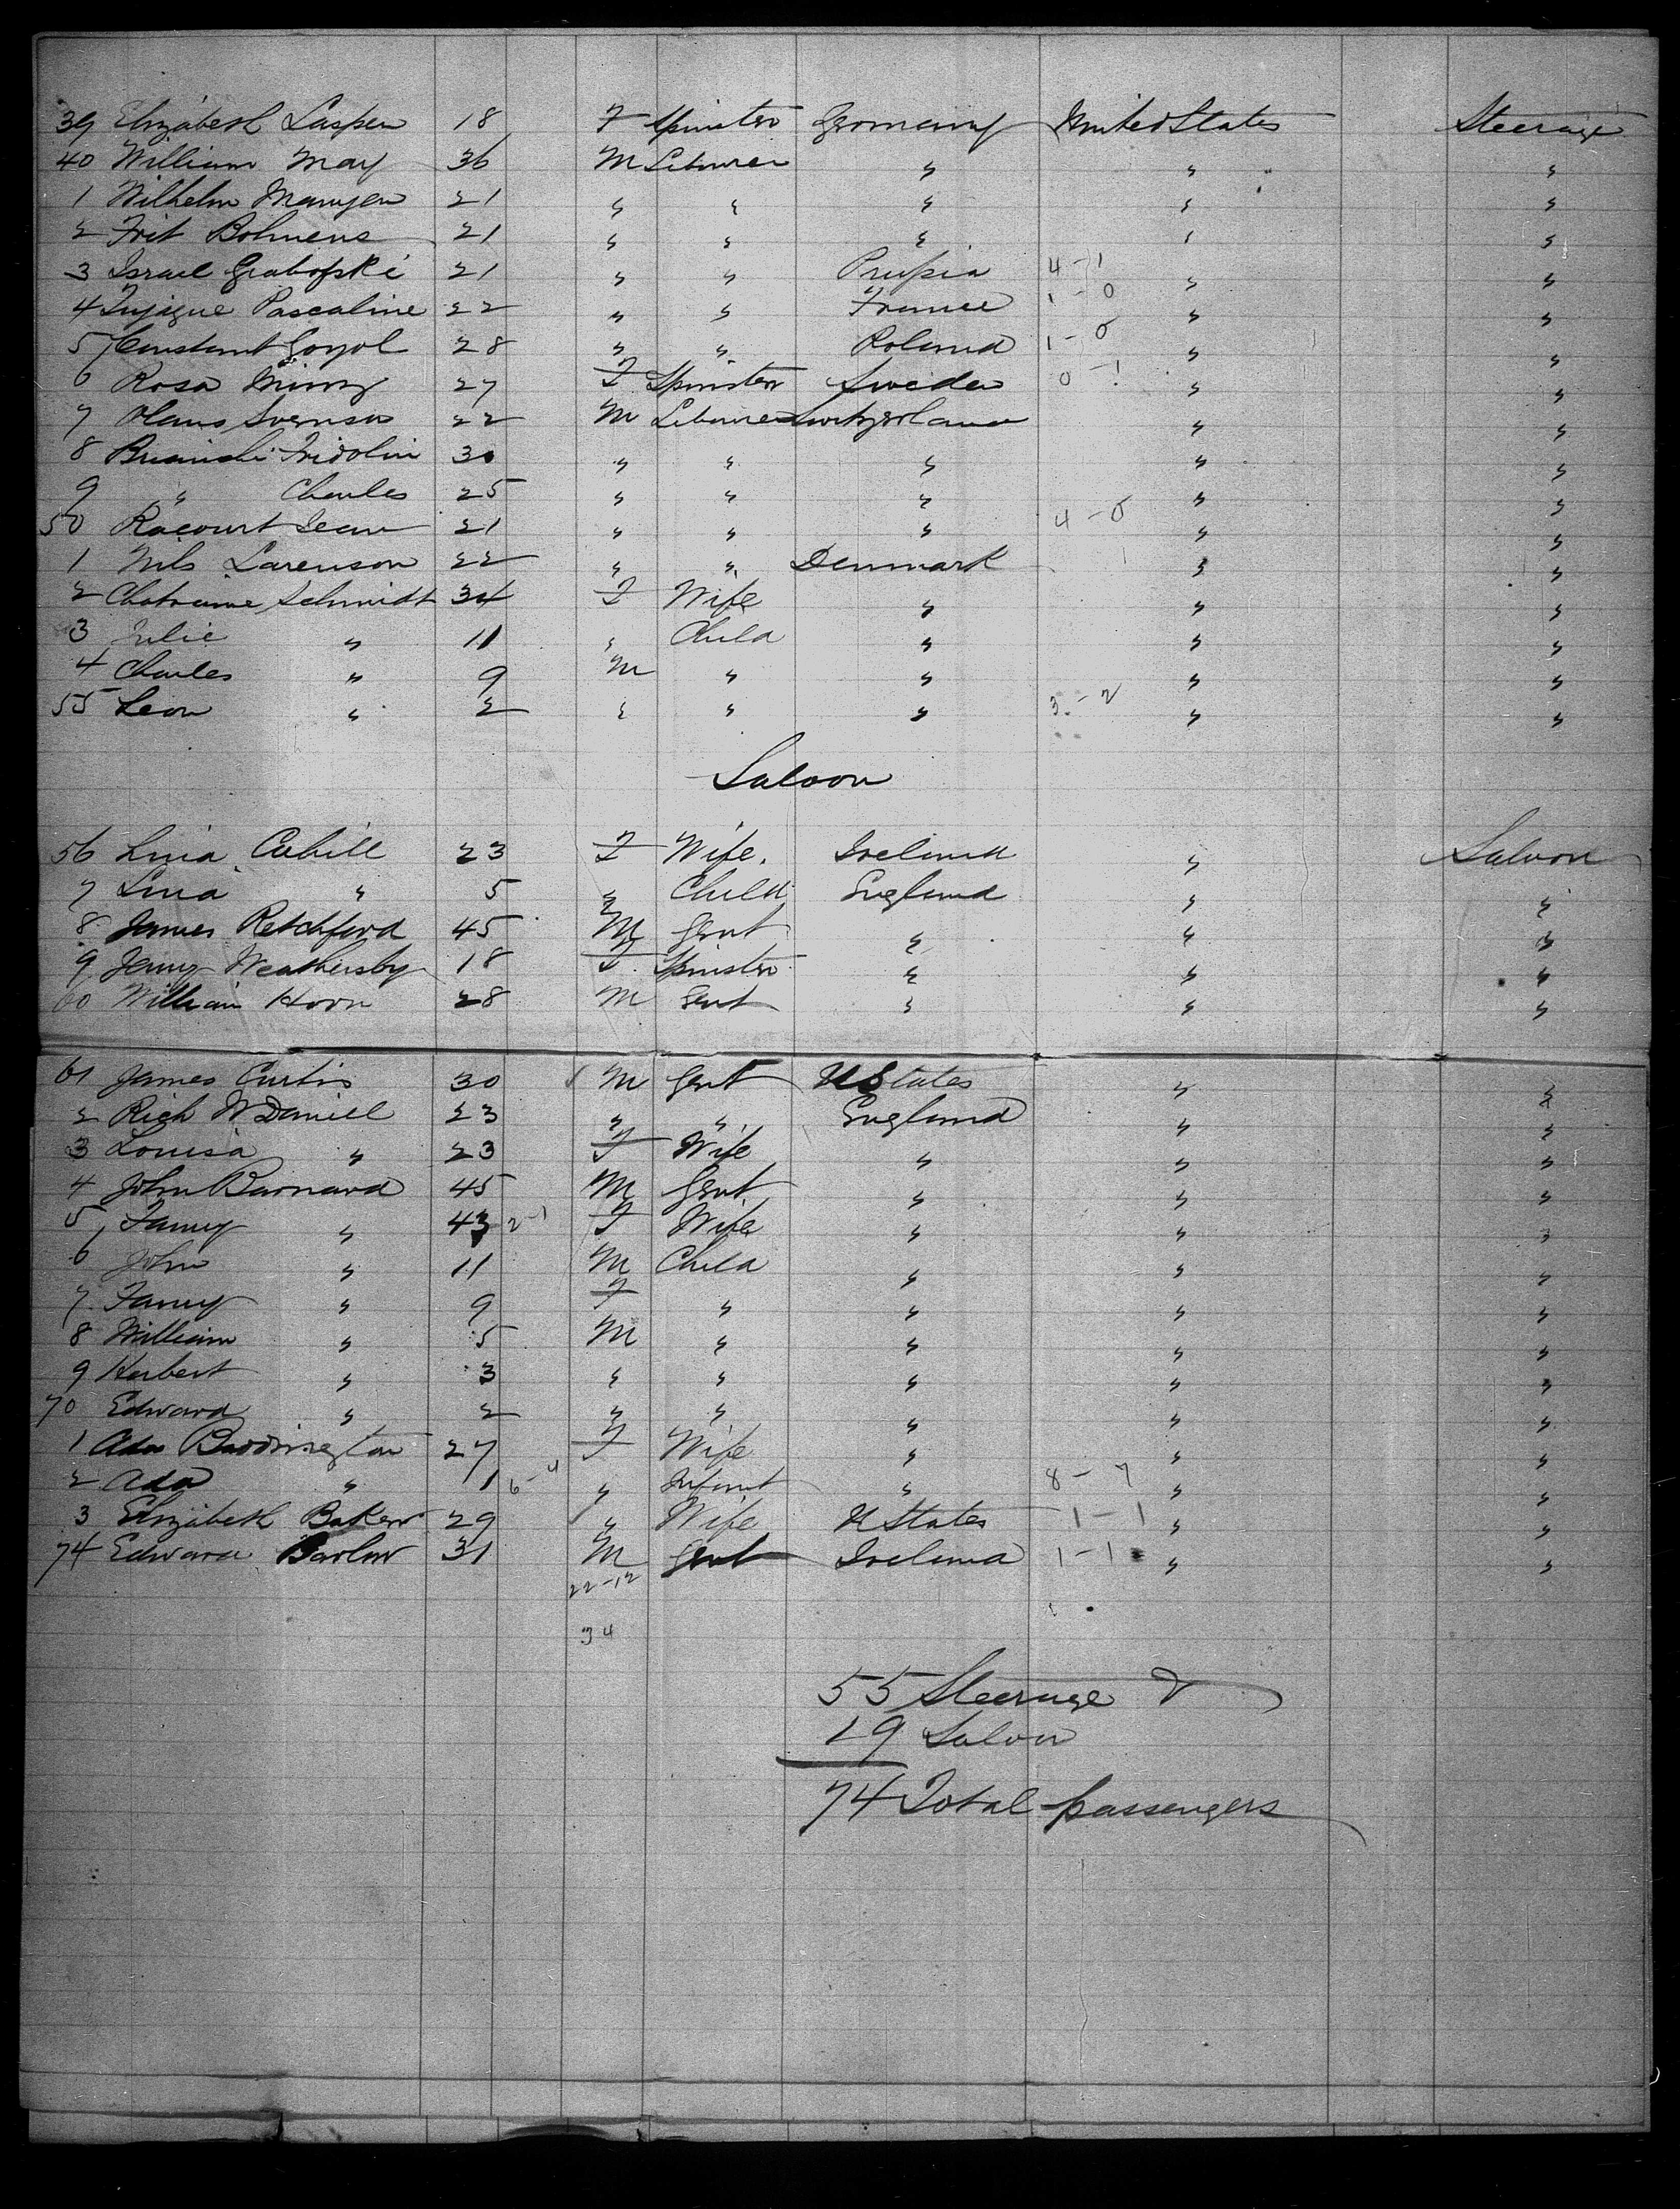 39 Elizabeth Laspen 18 F Spinster Germany United States Steerage
40 William May 36 M Labourer " " "
1 Wilhelm 21 " " " " "
2 Frit Bohmens 21 " " " " "
3 Israel Grabofski 21 " " Prussia 4-1 " "
4 Pascaline 22 " " France 1-0 " "
5 Constant Goyol 28 " " Poland 1-0 " "
6 Rosa 27 F Spinster Sweden 0-1 " "
7 Olaus Svenson 22 M Labourer Switzerland " "
8 Bruinchi Fridolin 30 " " " " "
9 " Charles 25 " " " " "
50 Racourt Jean 21 " " " 4-0 " "
1 Nils Larenson 22 " " Denmark " "
2 Schmidt 34 F Wife " " "
3 Julie " 11 " Child " " "
4 Charles " 9 M " " " "
55 Leon " 2 " " " 3-2 " "
Saloon
56 Lina Cahill 23 F Wife. Ireland " Saloon
7 Lina " 5 " Child England " "
8 James Retchford 45 M Gent " " "
9 Jenny Weathersby 18 F Spinster " " "
60 William Horn 28 M Gent " " "
61 James Curtis 30 M Gent U States " "
2 Rich McDaniell 23 " " England " "
3 Louisa " 23 F Wife " " "
4 John Barnard 45 M Gent " " "
5 Fanny " 43 2-1 F Wife " " "
6 John " 11 M Child " " "
7 Fanny " 9 F " " " "
8 William " 5 M " " " "
9 Herbert " 3 " " " " "
70 Edward " 2 " " " " "
1 Ada Baddington 27 F Wife " " "
2 Ada " 1 6-4 " Infant " 8-7 " "
3 Elizabeth Baker 29 " Wife U States 1-1 " "
74 Edward Barlow 31 M Gent Ireland 1-1 " "
22-12
34
55 Steerage
19 Saloon
74 Total passengers